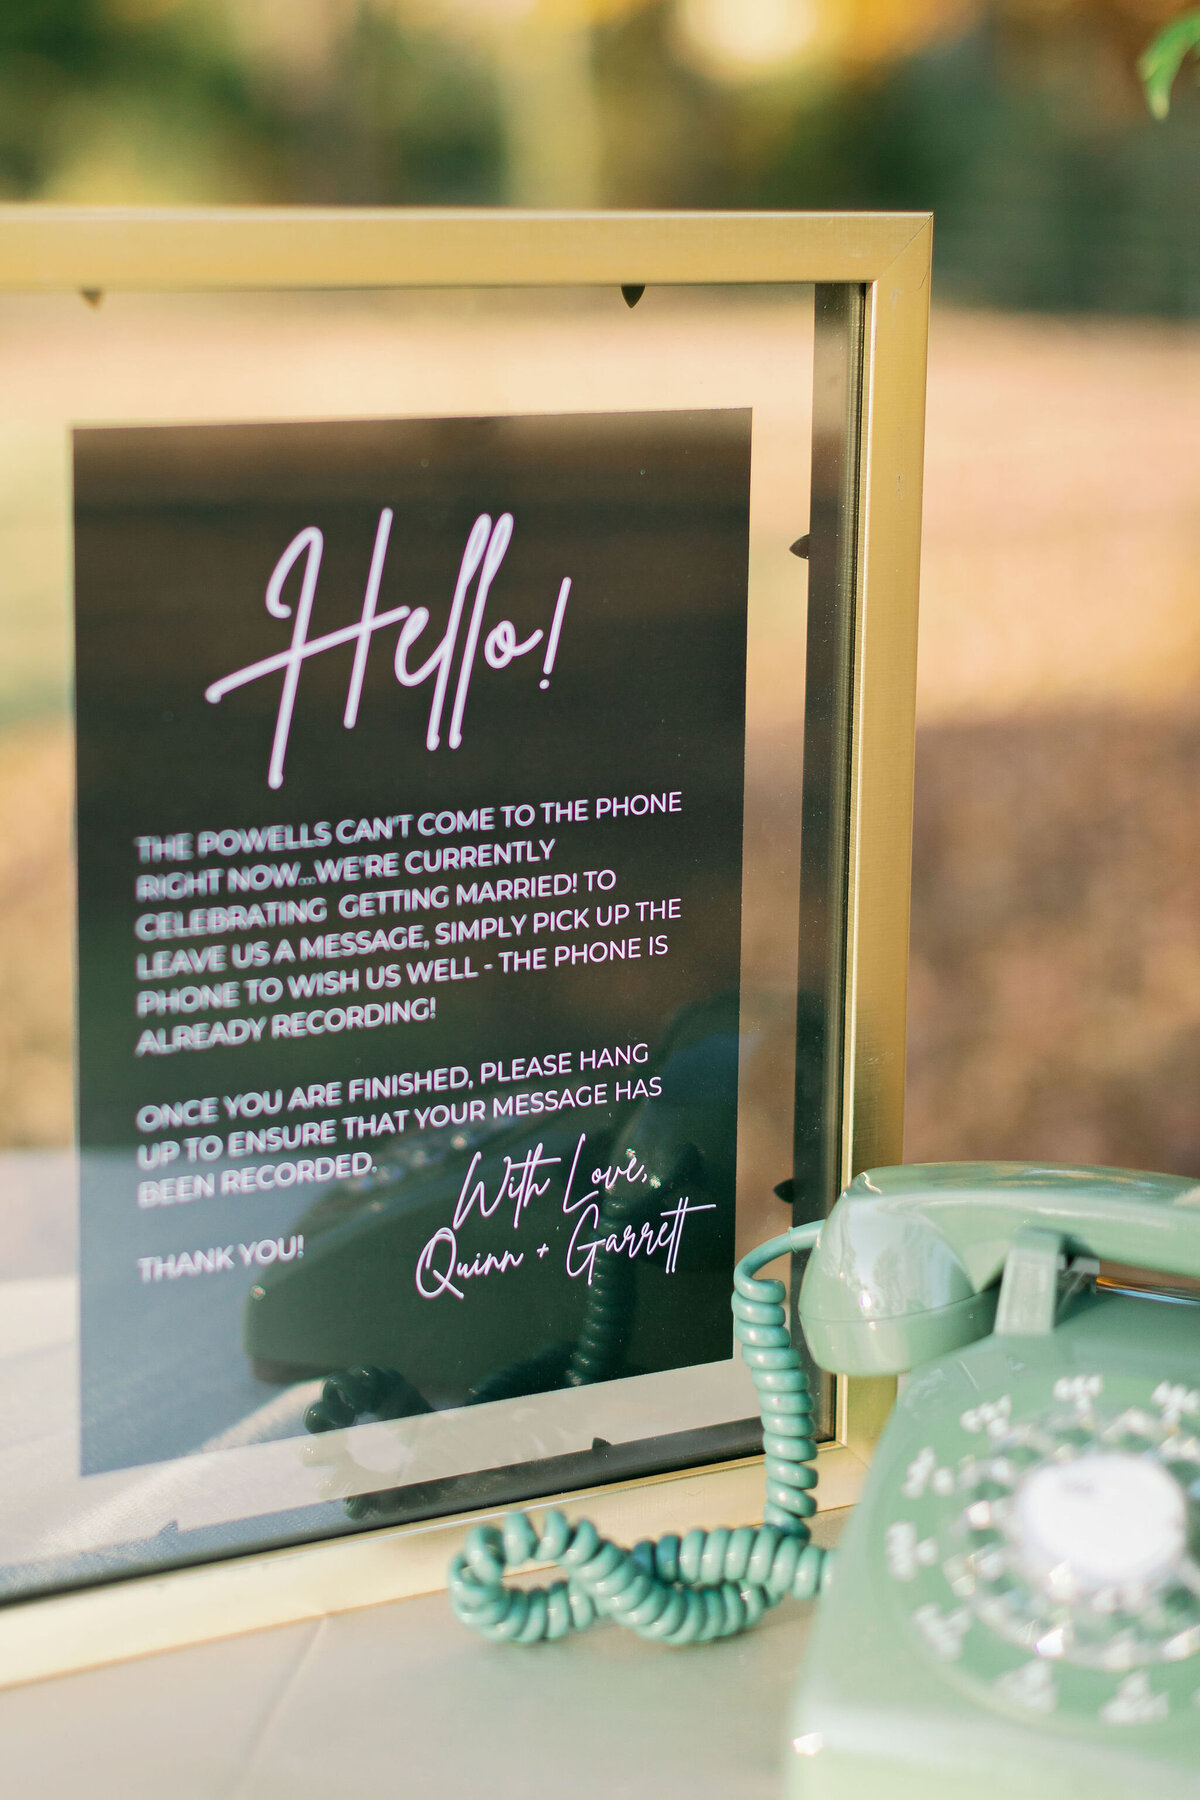 Hello!
THE POWELLS CAN'T COME TO THE PHONE
RIGHT NOW...WE'RE CURRENTLY
CELEBRATING GETTING MARRIED! TO
LEAVE US A MESSAGE, SIMPLY PICK UP THE
PHONE TO WISH US WELL - THE PHONE IS
ALREADY RECORDING!
ONCE YOU ARE FINISHED, PLEASE HANG
UP TO ENSURE THAT YOUR MESSAGE HAS
BEEN RECORDED.
THANK YOU!
With Love,
Quinn + Garrett